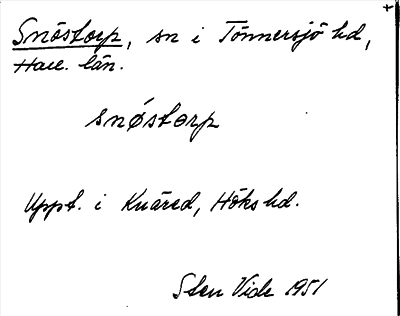 Snöstorp, sn i Tönnersjö hd,
Hall. län.
snǿstorp
Uppt. i Knäred, Höks hd.
Sten Vide 1951